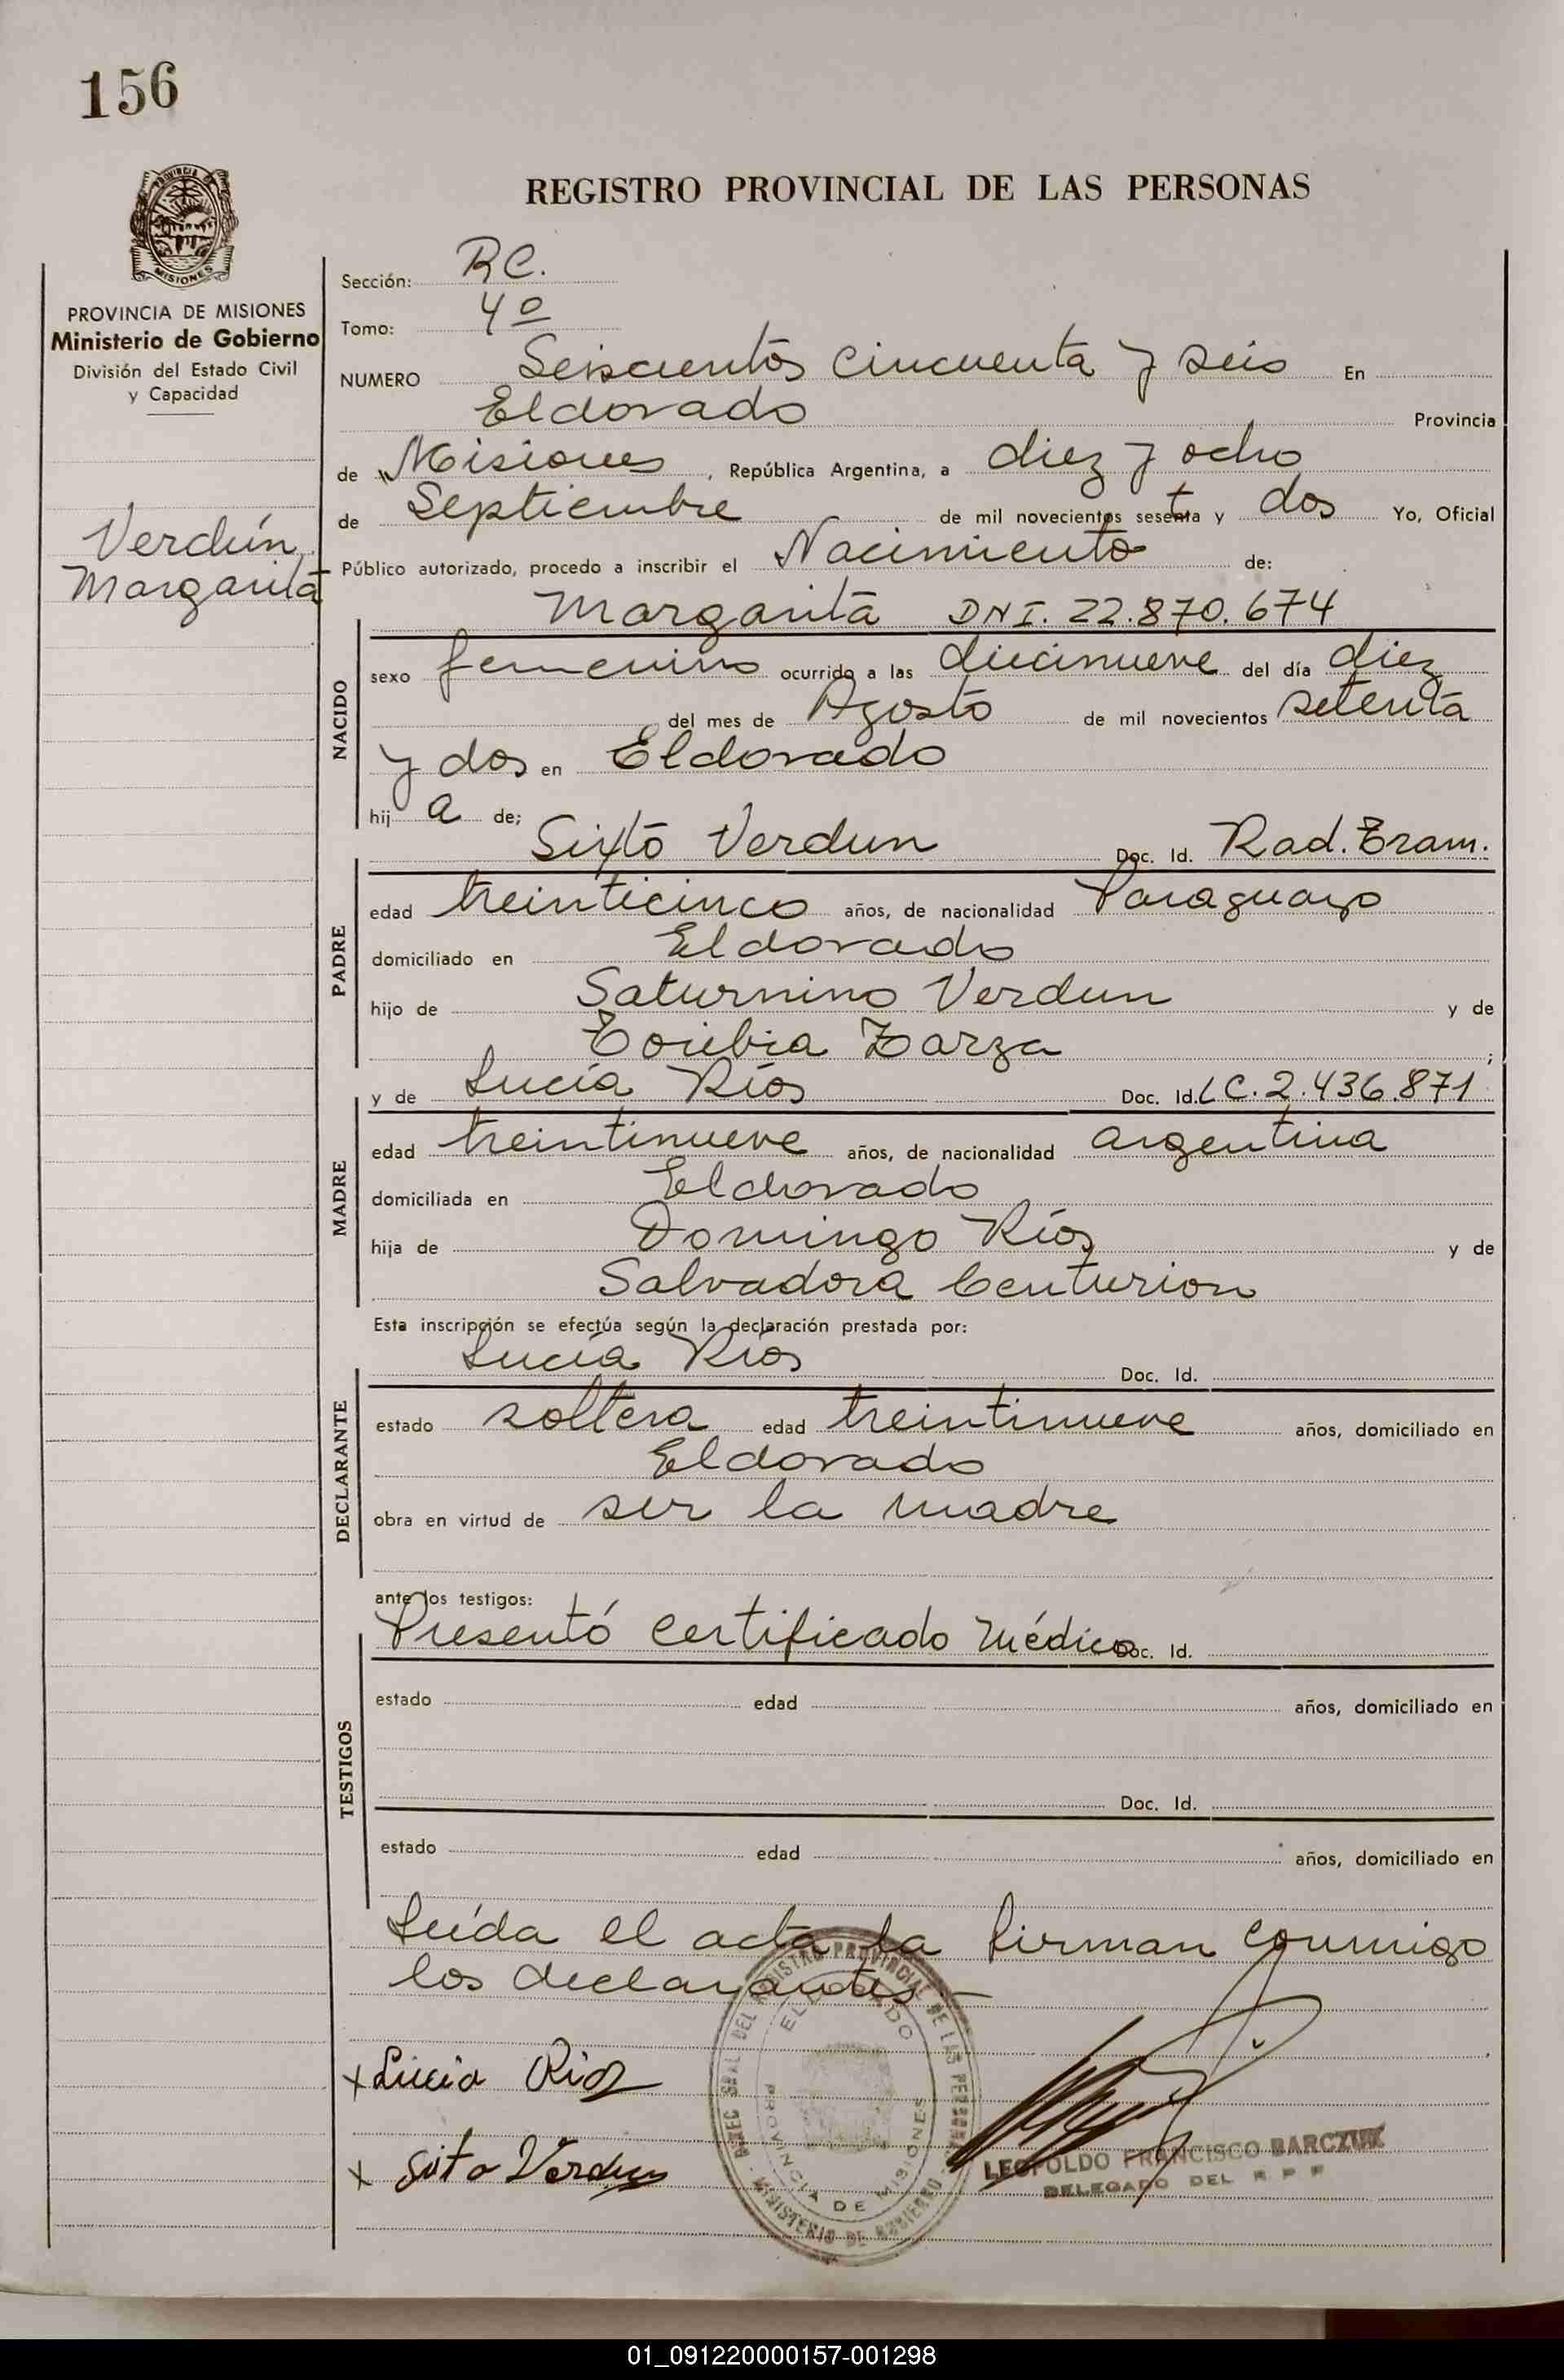 156
PROVINCIA DE MISIONES
Ministerio de Gobierno
División del Estado Civil
y Capacidad
Verdún,
Margarita
REGISTRO PROVINCIAL DE LAS PERSONAS
Sección: R C.
Tomo: 4º
NUMERO Seiscientos cincuenta y seis En
Eldorado Provincia
de Misiones, República Argentina, a diez y ocho
de Septiembre de mil novecientos sesenta y dos Yo, Oficial
Público autorizado, procedo a inscribir el Nacimiento de:
Margarita DNI. 22.870.674
NACIDO
sexo femenino ocurrido a las diecinueve del día diez
del mes de Agosto de mil novecientos setenta
y dos en Eldorado
hij a de;
Sixto Verdun Doc. Id. Rad. Tram.
PADRE
edad treinticinco años, de nacionalidad Paraguayo
domiciliado en Eldorado
hijo de Saturnino Verdun y de
Toribia Zarza;
y de Lucía Ríos Doc. Id. LC. 2.436.871
MADRE
edad treintinueve años, de nacionalidad argentina
domiciliada en Eldorado
hija de Domingo Ríos y de
Salvadora Centurion
Esta inscripción se efectúa según la declaración prestada por:
Lucía Ríos Doc. Id.
DECLARANTE
estado soltera edad treintinueve años, domiciliado en
Eldorado
obra en virtud de ser la madre
ante los testigos:
Presentó certificado médico Doc. Id.
TESTIGOS
estado edad años, domiciliado en
Doc. Id.
estado edad años, domiciliado en
Leída el acta la firman conmigo
los declarantes.-
x Lucia Rioz
x Sixto Verdun
DIREC GRAL DEL REGISTRO PROVINCIAL DE LAS PERSONAS
ELDORADO
PROVINCIA DE MISIONES
MINISTERIO DE GOBIERNO
LEOPOLDO FRANCISCO BARCZUK
DELEGADO DEL R P P
01_091220000157-001298